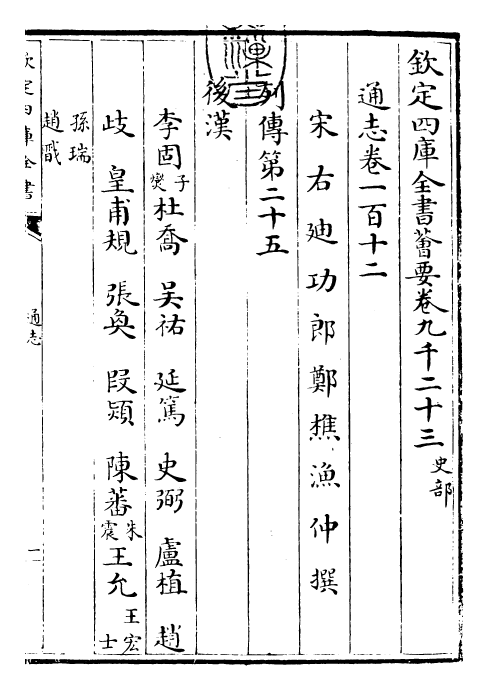 欽定四庫全書薈要卷九千二十三 史部
通志卷一百十二
宋右迪功郎鄭樵漁仲撰
列傳第二十五
後漢
李固 子燮 杜喬 吳祐 延篤 史弼 盧植 趙
歧 皇甫規 張奐 段熲 陳蕃 朱震 王允 王宏 士
孫瑞
趙戩
欽定四庫全書
通志
一